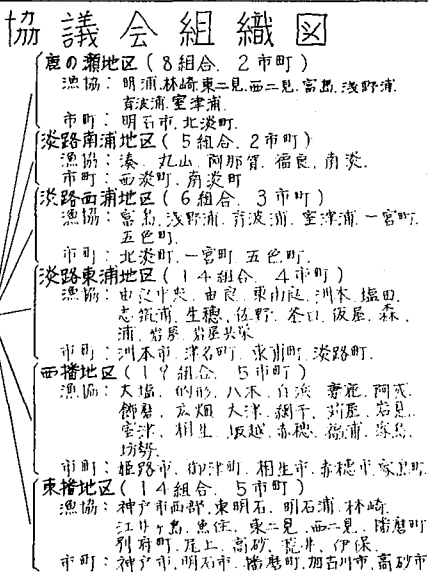 協議会組織図
鹿の瀬地区(8組合、2市町)
漁協:明浦、林崎、東二見、西二見、富島、浅野浦
育波浦、室津浦、
市町:明石市、北淡町、
淡路南浦地区(5組合、2市町)
漁協:湊、丸山、阿那賀、福良、南淡、
市町:西淡町、南淡町
淡路西浦地区(6組合、3市町)
漁協:富島、浅野浦、育波浦、室津浦、一宮町、
五色町、
市町:北淡町、一宮町、五色町、
淡路東浦地区(14組合、4市町)
漁協:由良中央、由良、東由良、洲本、塩田、
志筑浦、生穂、佐野、釜口、仮屋、森、
浦、岩屋、岩屋共栄
市町:洲本市、津名町、東浦町、淡路町、
西播地区(19組合、5市町)
漁協:大塩、的形、八木、白浜、妻鹿、阿成
飾磨、広畑、大津、網干、苅屋、岩見、
室津、相生、坂越、赤穂、福浦、家島、
坊勢、
市町:姫路市、御津町、相生市、赤穂市、家島町、
東播地区(14組合、5市町)
漁協:神戸市西部、東明石、明石浦、林崎、
江井ヶ島、魚住、東二見、西二見、播磨町
別府町、尾上、高砂、荒井、伊保、
市町:神戸市、明石市、播磨町、加古川市、高砂市